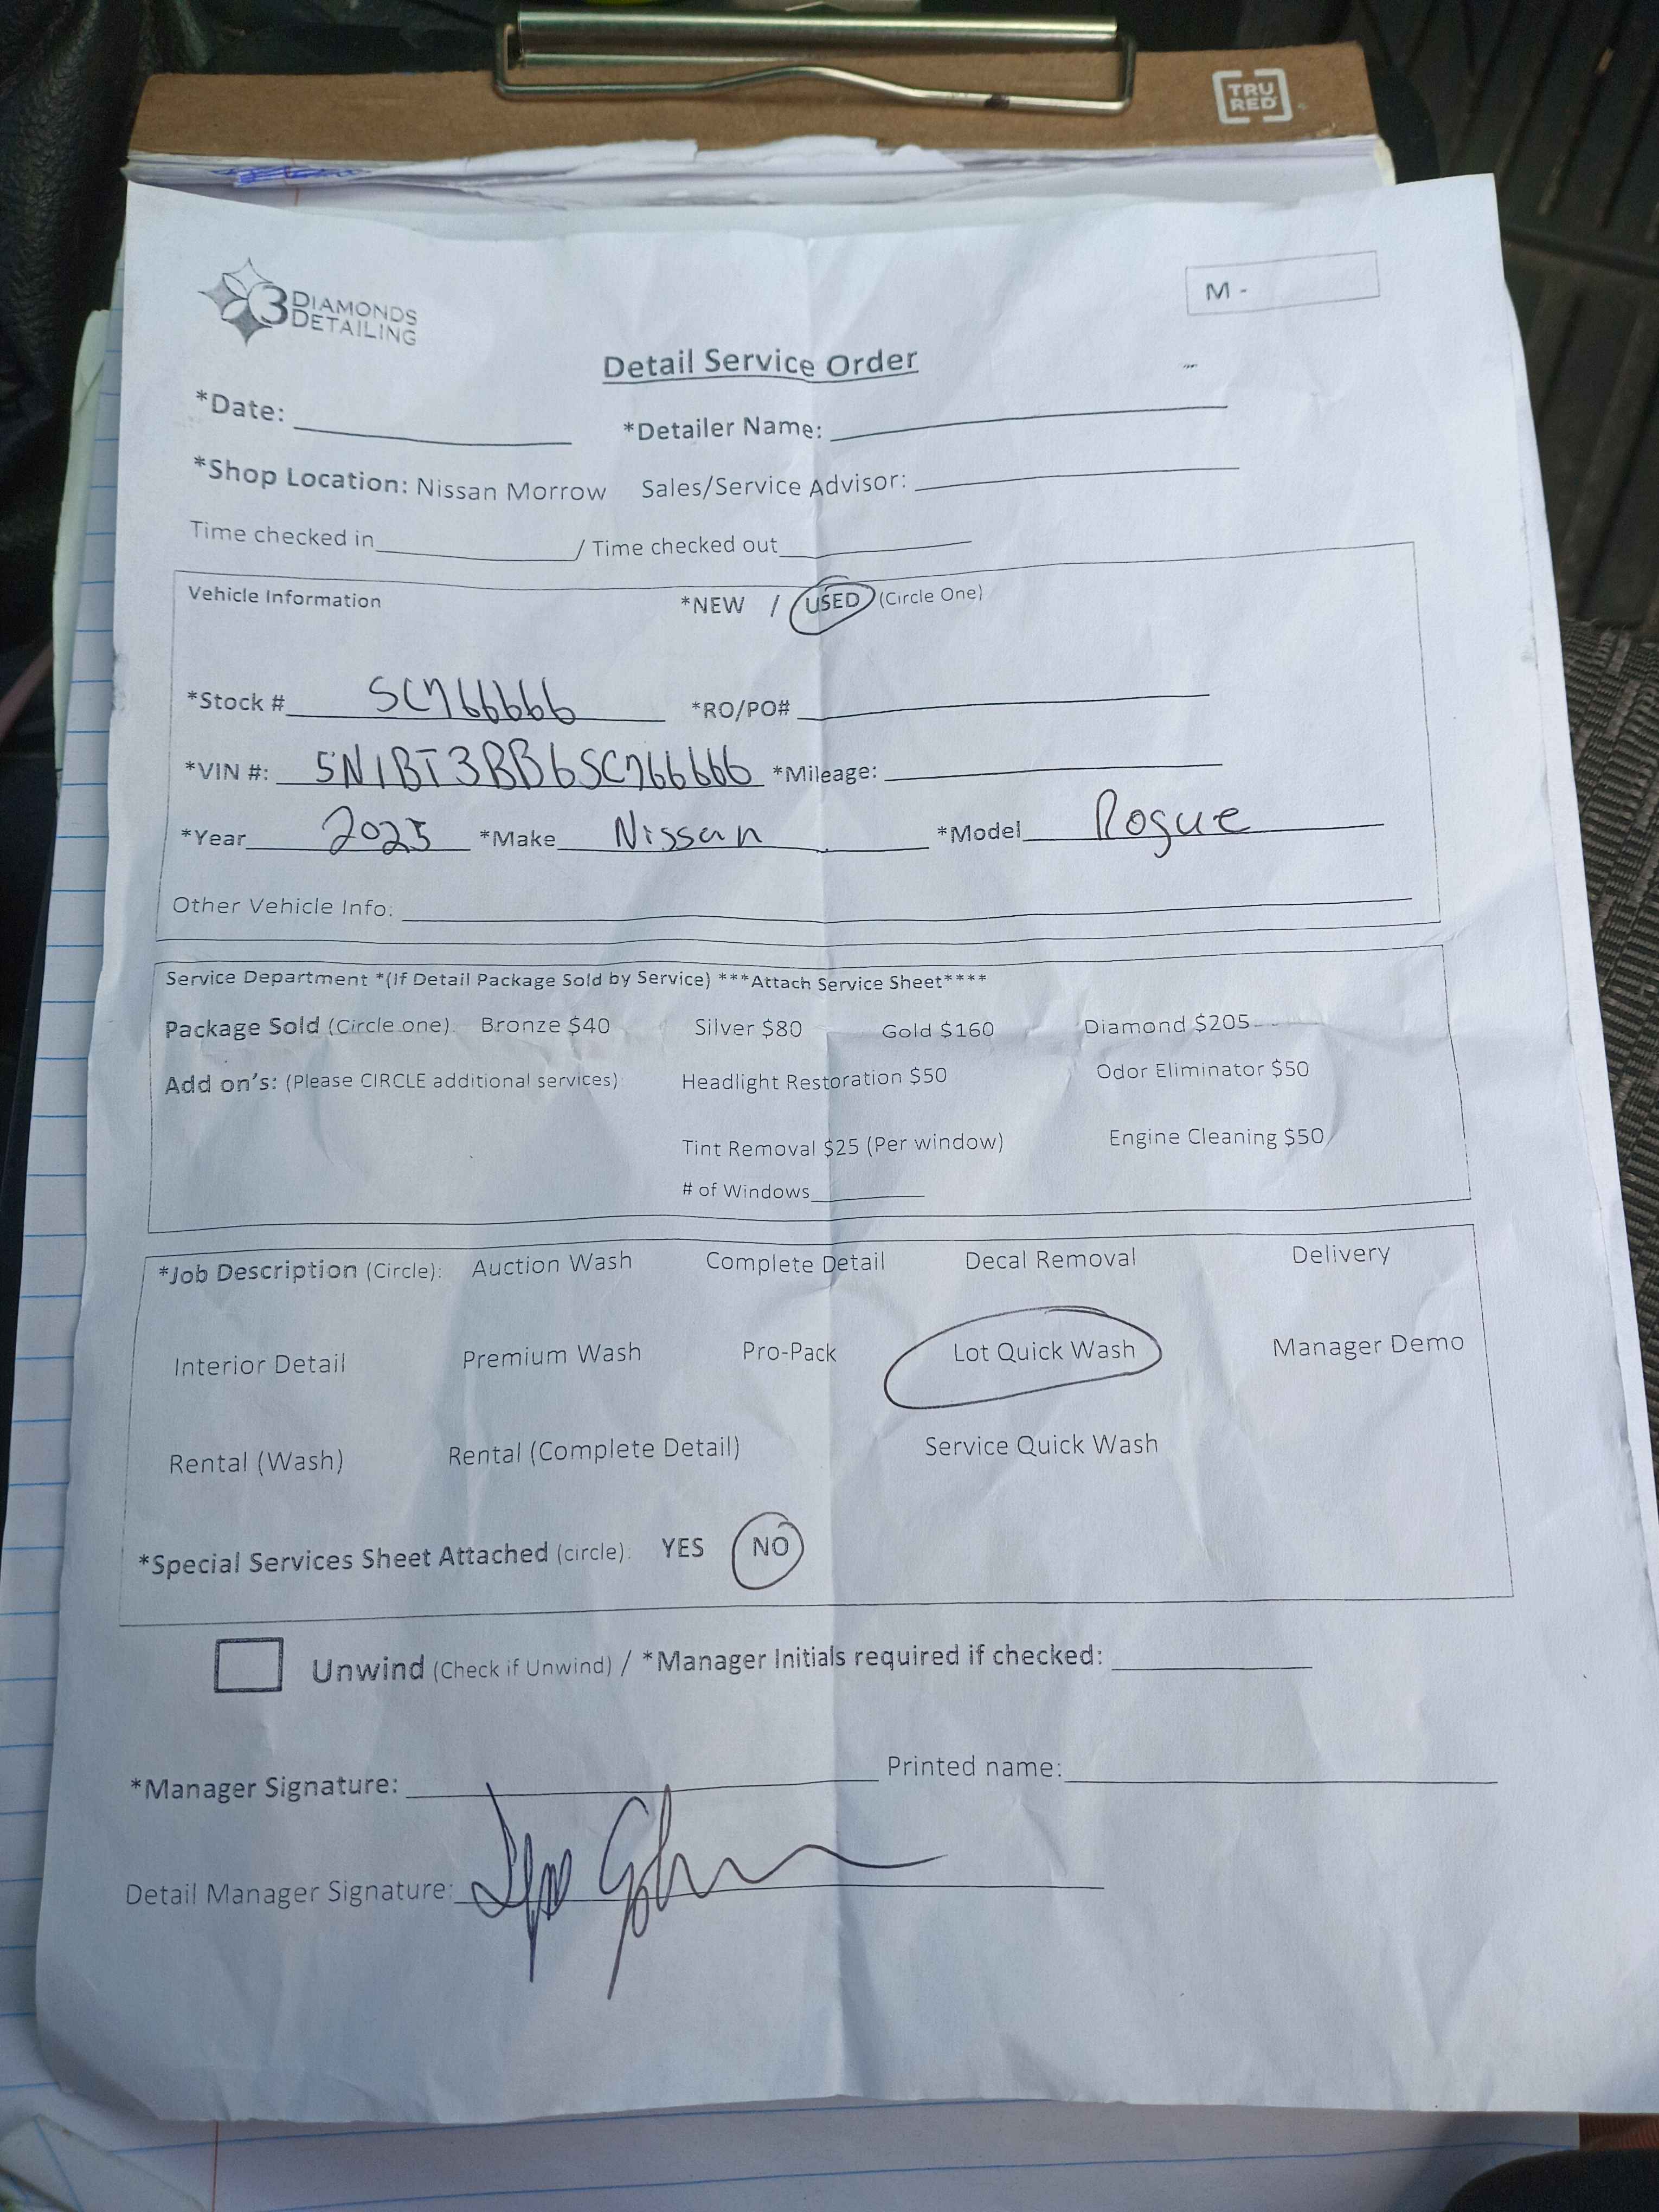 TRU
RED
3 DIAMONDS
DETAILING
M -
Detail Service Order
*Date: *Detailer Name:
*Shop Location: Nissan Morrow Sales/Service Advisor:
Time checked in / Time checked out
Vehicle Information *NEW / USED (Circle One)
*Stock # SC766666 *RO/PO#
*VIN #: 5N1BT3BB6SC766666 *Mileage:
*Year 2025 *Make Nissan *Model Rogue
Other Vehicle Info:
Service Department *(If Detail Package Sold by Service) ***Attach Service Sheet****
Package Sold (Circle one) Bronze $40 Silver $80 Gold $160 Diamond $205
Add on's: (Please CIRCLE additional services) Headlight Restoration $50 Odor Eliminator $50
Tint Removal $25 (Per window) Engine Cleaning $50
# of Windows
*Job Description (Circle): Auction Wash Complete Detail Decal Removal Delivery
Interior Detail Premium Wash Pro-Pack Lot Quick Wash Manager Demo
Rental (Wash) Rental (Complete Detail) Service Quick Wash
*Special Services Sheet Attached (circle): YES NO
Unwind (Check if Unwind) / *Manager Initials required if checked:
*Manager Signature: Printed name:
Detail Manager Signature: